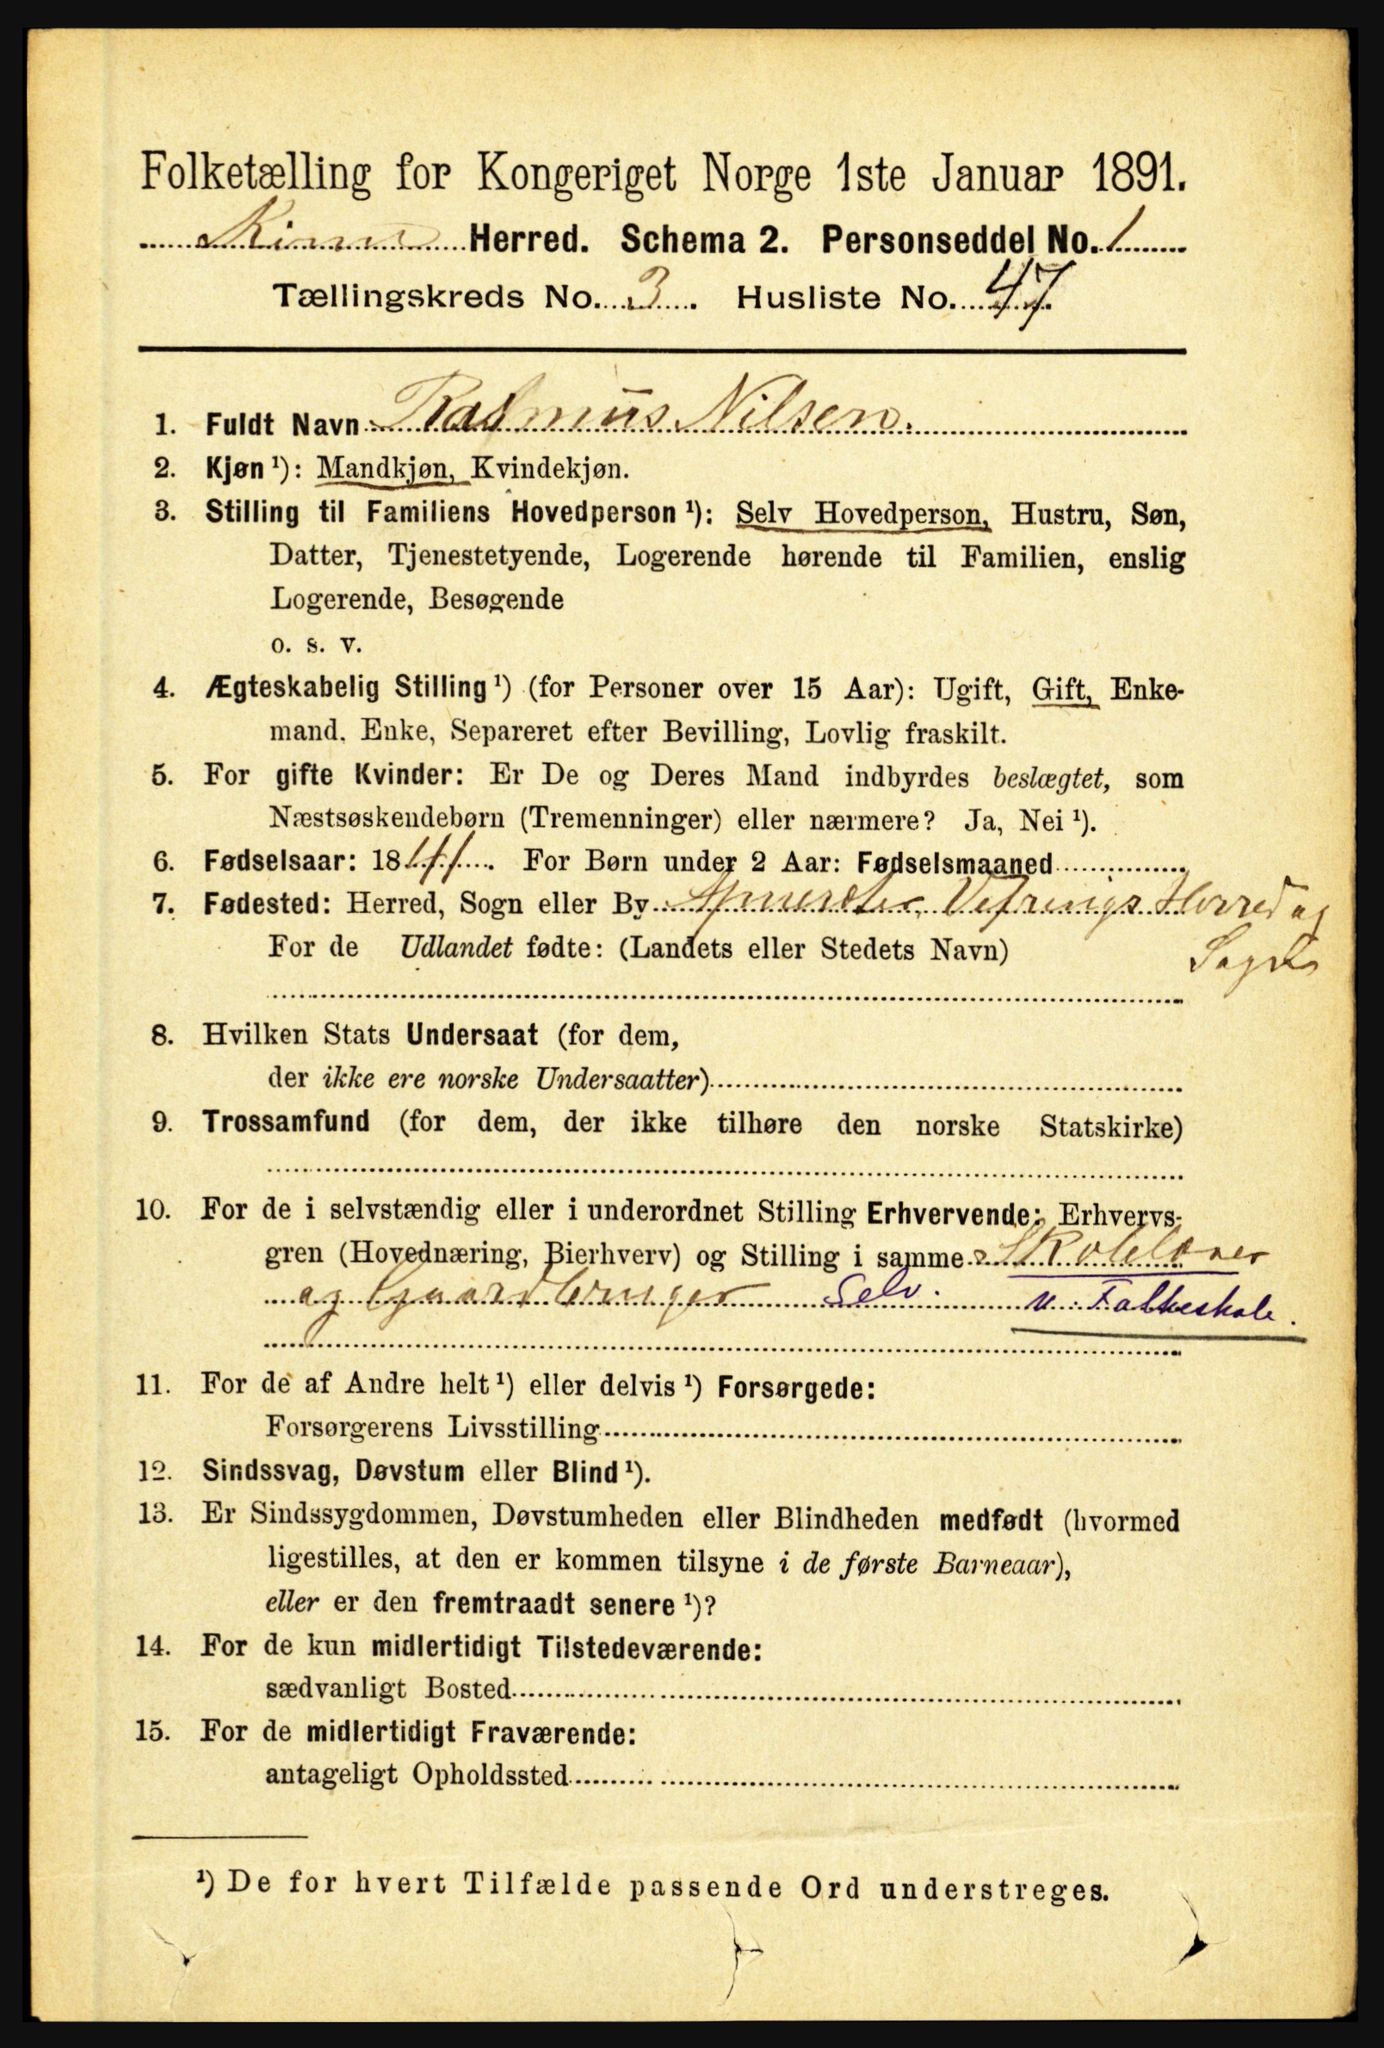 Folketælling for Kongeriget Norge 1ste Januar 1891.
Kinn Herred. Schema 2. Personseddel No. 1
Tællingskreds No. 3. Husliste No. 47.
1. Fuldt Navn Rasmus Nilsen.
2. Kjøn ¹): Mandkjøn, Kvindekjøn.
3. Stilling til Familiens Hovedperson ¹): Selv Hovedperson, Hustru, Søn,
Datter, Tjenestetyende, Logerende hørende til Familien, enslig
Logerende, Besøgende
o. s. v.
4. Ægteskabelig Stilling ¹) (for Personer over 15 Aar): Ugift, Gift, Enke-
mand, Enke, Separeret efter Bevilling, Lovlig fraskilt.
5. For gifte Kvinder: Er De og Deres Mand indbyrdes beslægtet, som
Næstsøskendebørn (Tremenninger) eller nærmere? Ja, Nei ¹).
6. Fødselsaar: 1844. For Børn under 2 Aar: Fødselsmaaned
7. Fødested: Herred, Sogn eller By Vefrings Herred og
For de Udlandet fødte: (Landets eller Stedets Navn) Sogn
8. Hvilken Stats Undersaat (for dem,
der ikke ere norske Undersaatter)
9. Trossamfund (for dem, der ikke tilhøre den norske Statskirke)
10. For de i selvstændig eller i underordnet Stilling Erhvervende: Erhvervs-
gren (Hovednæring, Bierhverv) og Stilling i samme Skolelærer
og Gaardbruger Selv. v. Folkeskole.
11. For de af Andre helt ¹) eller delvis ¹) Forsørgede:
Forsørgerens Livsstilling
12. Sindssvag, Døvstum eller Blind ¹).
13. Er Sindssygdommen, Døvstumheden eller Blindheden medfødt (hvormed
ligestilles, at den er kommen tilsyne i de første Barneaar),
eller er den fremtraadt senere ¹)?
14. For de kun midlertidigt Tilstedeværende:
sædvanligt Bosted
15. For de midlertidigt Fraværende:
antageligt Opholdssted
¹) De for hvert Tilfælde passende Ord understreges.